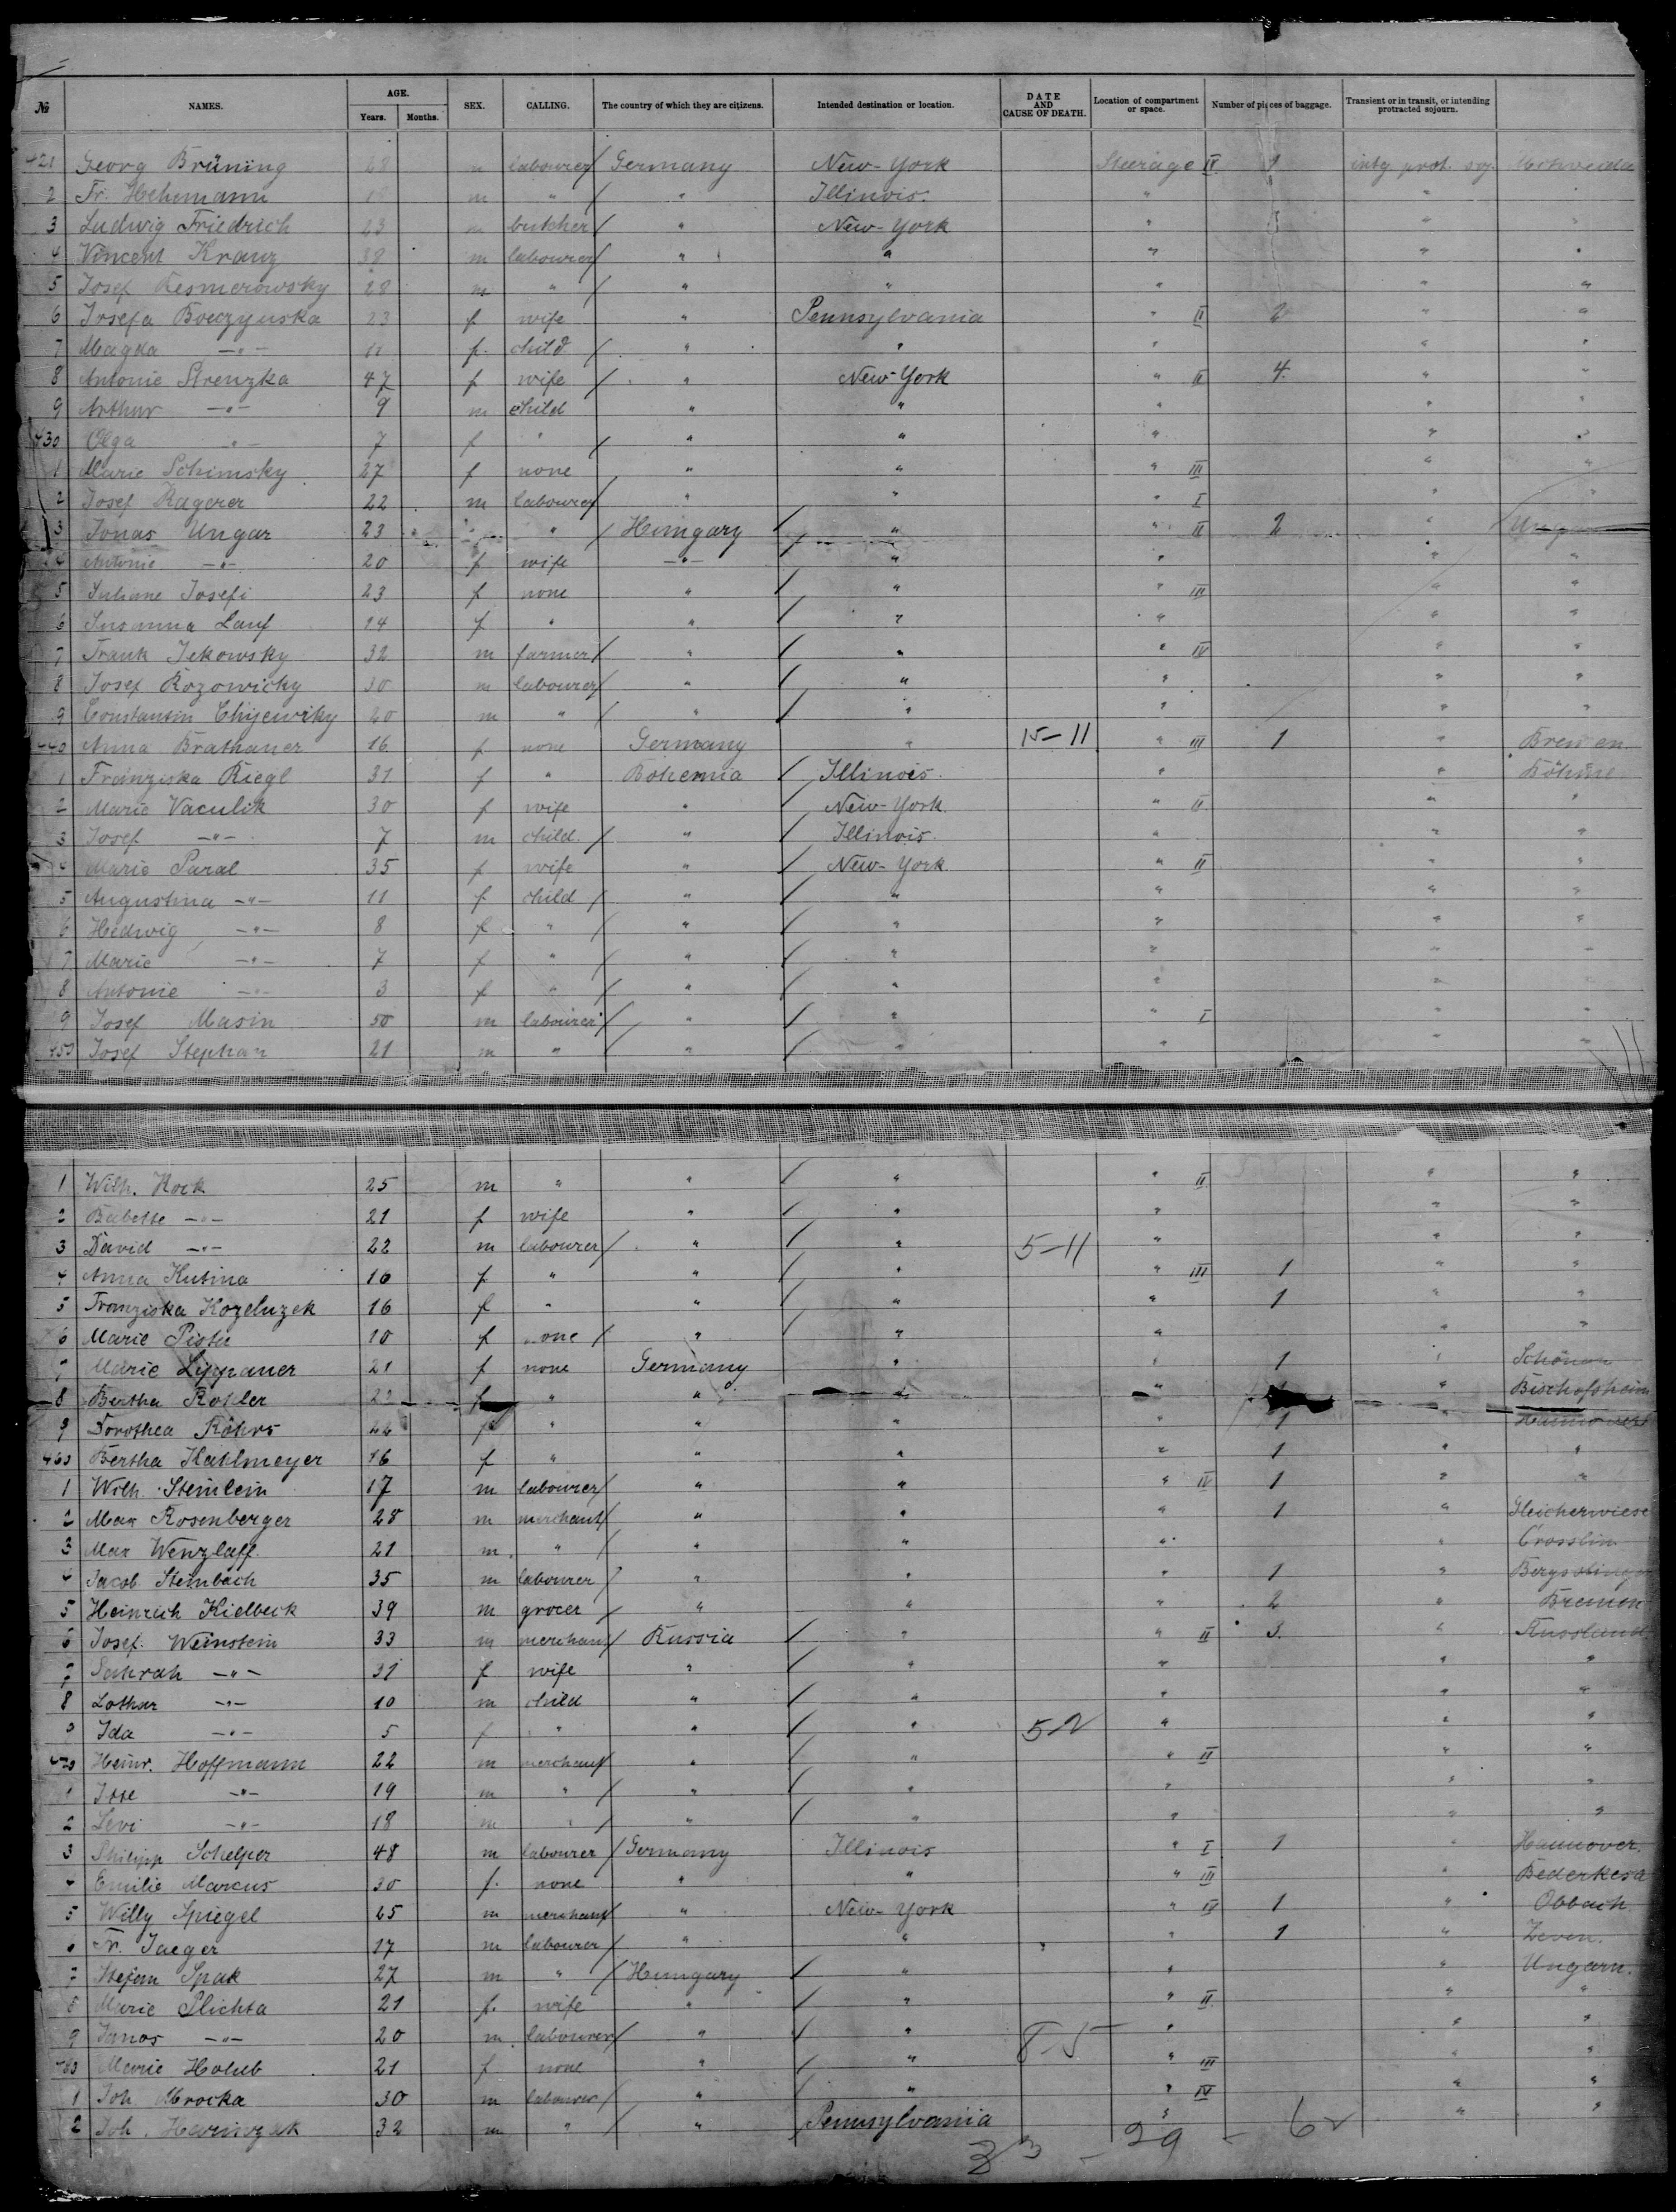 № NAMES. AGE. Years. Months. SEX. CALLING. The country of which they are citizens. Intended destination or location. DATE AND CAUSE OF DEATH. Location of compartment or space. Number of pieces of baggage. Transient or in transit, or intending protracted sojourn.
421 Georg Brüning 28 m labourer Germany New-York Steerage IV 1 intg prot. soj.
2 Fr. Hehemann m " " Illinois. " " "
3 Ludwig Friedrich 23 m butcher " New-York " " "
4 Vincent Kranz 38 m labourer " " " " "
5 Josef Kesmerowsky 28 m " " " " " "
6 Josefa Boeczynska 23 f wife " Pennsylvania " II 2 " "
7 Magda -"- 11 f. child " " " " "
8 Antonie Strenzka 47 f wife " New-York " II 4. " "
9 Arthur -"- 9 m child " " " " "
430 Olga "- 7 f " " " " " "
1 Marie Schimsky 27 f none " " " III " "
2 Josef Ragerer 22 m labourer " " " I " "
3 Jonas Ungar 23 " " Hungary " " II 2 " Ungarn
4 Antonie -"- 20 f wife -"- " " " "
5 Juliane Josefi 23 f none " " " III " "
6 Susanna Lauf 14 f " " " " " "
7 Frank Jekowsky 32 m farmer " " " IV " "
8 Josef Rozowicky 30 m labourer " " " " "
9 Constantin Chijewiky 20 m " " " " " "
440 Anna Brathauer 16 f none Germany " 15-11 " III 1 " Bremen
1 Franziska Riegl 31 f " Bohemia Illinois. " " Böhme
2 Marie Vaculik 30 f wife " New-York. " II " "
3 Josef -"- 7 m child. " Illinois. " " "
4 Marie Paral 35 f wife " New-York " II " "
5 Augustina -"- 11 f child " " " " "
6 Hedwig -"- 8 f " " " " " "
7 Marie -"- 7 f " " " " " "
8 Antonie -"- 3 f " " " " " "
9 Josef Masin 50 m labourer " " " I " "
450 Josef Stephan 21 m " " " " " "
1 Wilh. Kock 25 m " " " " II " "
2 Babette -"- 21 f wife " " " " "
3 David -"- 22 m labourer " " 5-11 " " "
4 Anna Kutina 16 f " " " " III 1 " "
5 Franziska Kozeluzek 16 f " " " " 1 " "
6 Marie Pistie 10 f none " " " " "
7 Marie Lippauer 21 f none Germany " " 1 " Schönau
8 Bertha Kohler 22 f " " " " " Bischofsheim
9 Dorothea Röhrs 22 f " " " " 1 " Hannover
460 Bertha Kahlmeyer 16 f " " " " 1 " "
1 Wilh. Steinlein 17 m labourer " " " IV 1 " "
2 Max Rosenberger 28 m merchant " " " 1 " Gleicherwiese
3 Max Wenzlaff 21 m. " " " " " Crosslin
4 Jacob Steinbach 35 m labourer " " " 1 "
5 Heinrich Kielbeck 39 m grocer " " " 2 " Bremen
6 Josef. Weinstein 33 m merchant Russia " " II 3. " Russland.
7 Sahrah -"- 31 f wife " " " " "
8 Lothar -"- 10 m child " " " " "
9 Ida -"- 5 f " " " " " "
470 Heinr. Hoffmann 22 m merchant " " " II " "
1 -"- 19 m " " " " " "
2 Levi -"- 18 m " " " " " "
3 Philipp Schelper 48 m labourer Germany Illinois " I 1 " Hannover.
4 Emilie Marcus 30 f. none " " " III " Bederkesa
5 Willy Spiegel 25 m merchant " New-York " IV 1 " Obbach.
6 Fr. Jaeger 17 m labourer " " " 1 " Zeven.
7 Stefan Spak 27 m " Hungary " " " Ungarn.
8 Marie Plichta 21 f. wife " " " II " "
9 Janos -"- 20 m labourer " " 8-5 " " "
480 Marie Holub 21 f none " " " III " "
1 Joh. Mrocka 30 m labourer " " " IV " "
2 Joh. Harinzak 32 m " " Pennsylvania " " "